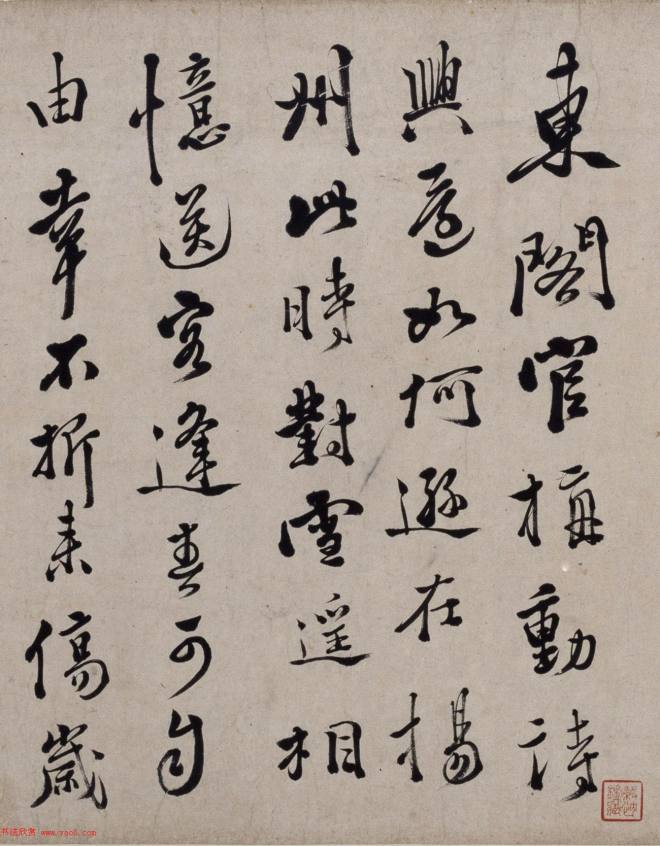 東閣官梅動詩
興還如何遜在揚
州此時對雪遥相
憶送客逢春可自
由幸不折来傷歲
书法欣赏 www.yac8.com